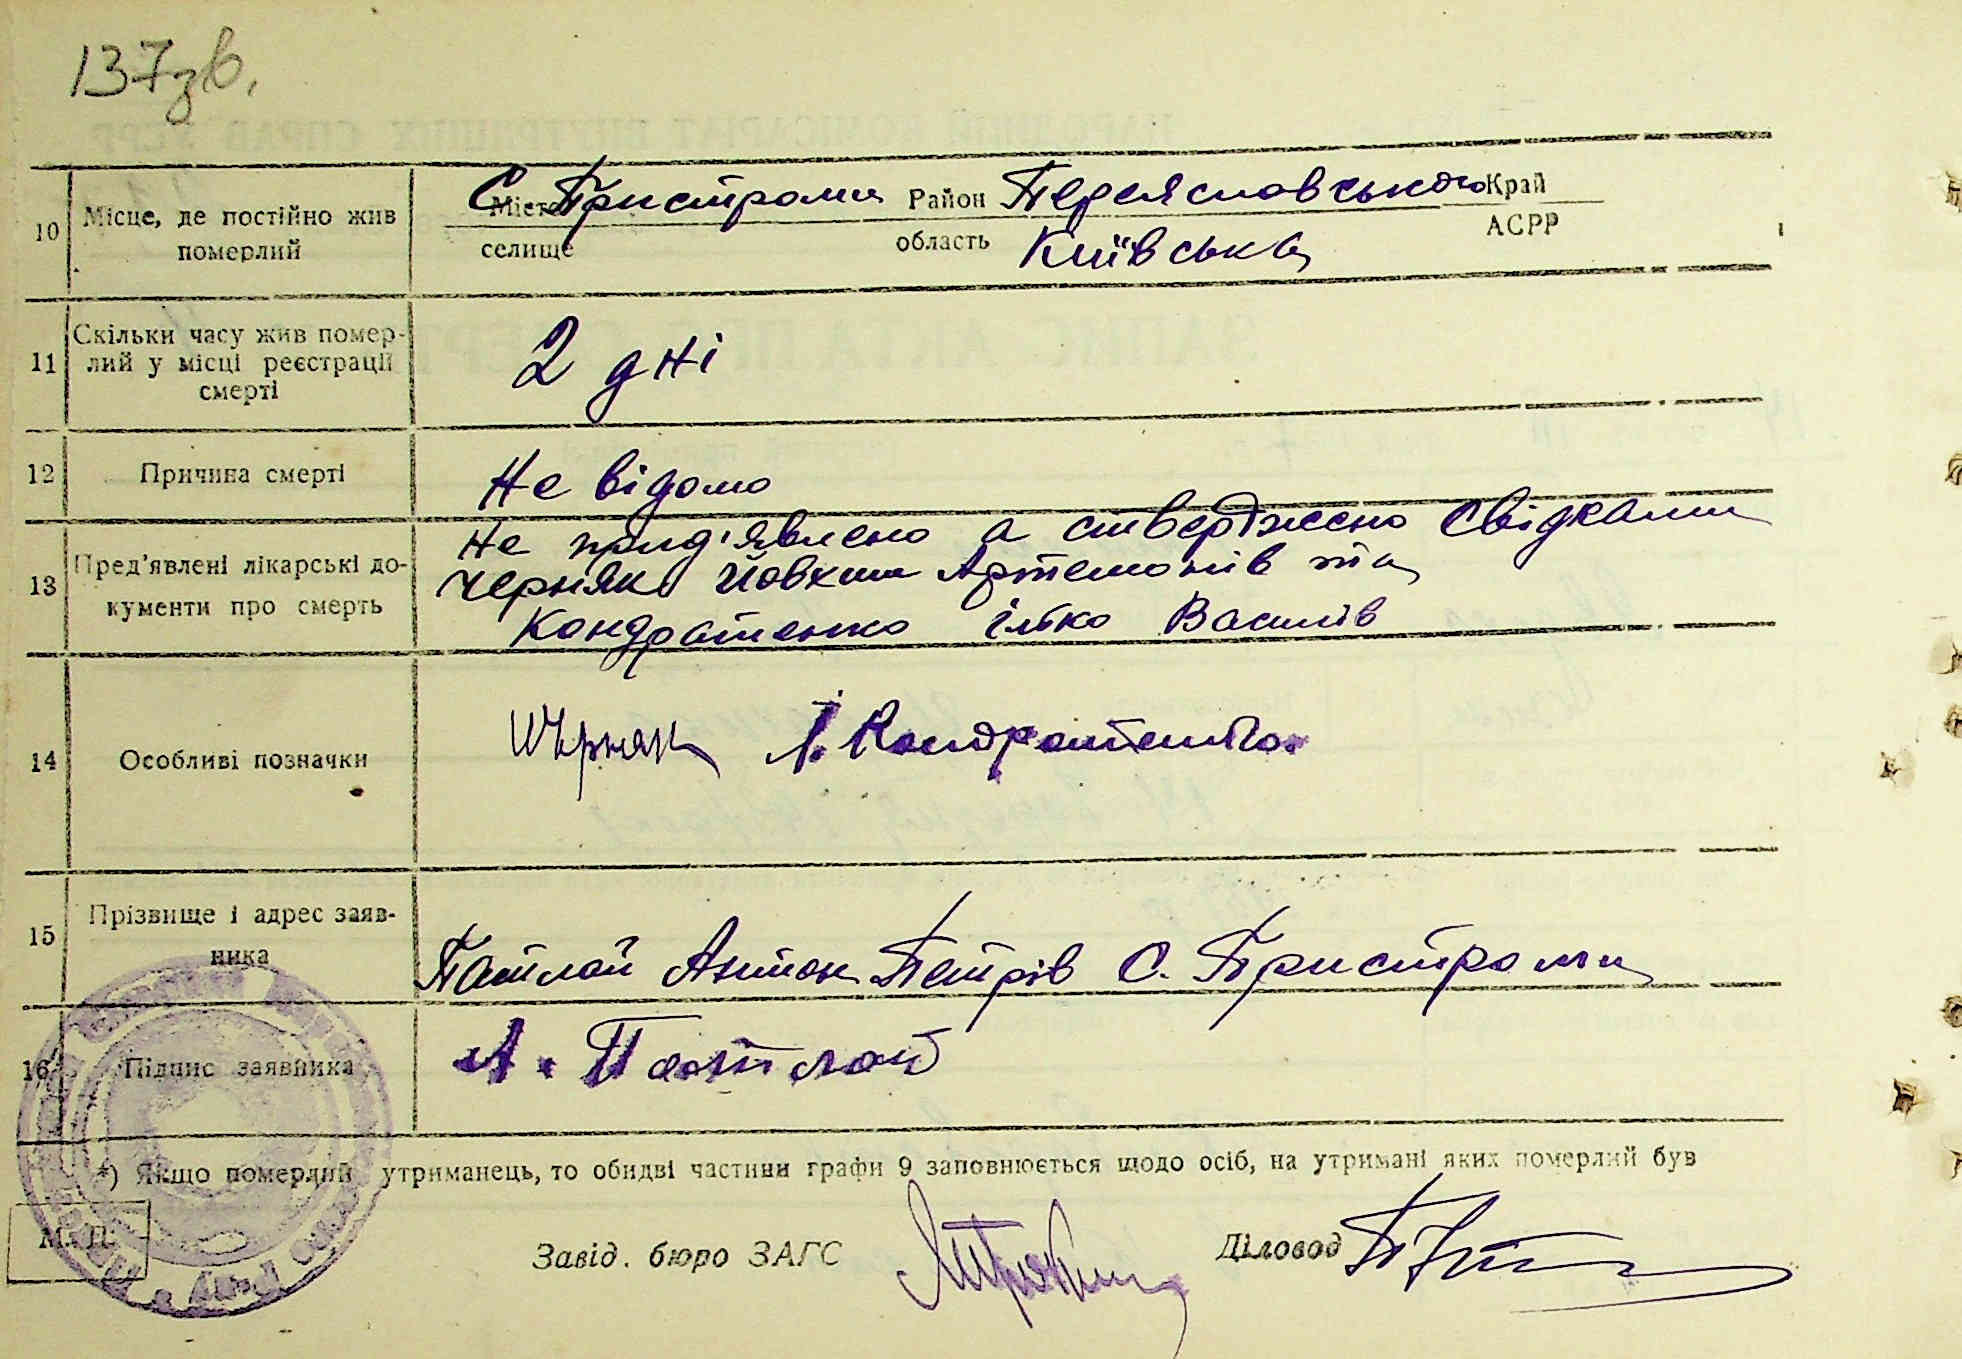 137зв.
10 Місце, де постійно жив померлий
С. Пристроми Район Переясловського Край
Місто
селище область Київська АСРР
11 Скільки часу жив помер-
лий у місці реєстрації
смерті
2 дні
12 Причина смерті
Не відомо
13 Пред'явлені лікарські до-
кументи про смерть
Не пред'явлено а стверджено свідками
Черняк Йовхим Артемонів та
Кондратенко Ілько Василів
14 Особливі позначки
Кондратенко
15 Прізвище і адрес заяв-
ника
Патлай Антон Петрів С. Пристроми
16 Підпис заявника
А. Патлай
*) Якщо померлий утриманець, то обидві частини графи 9 заповнюється щодо осіб, на утримані яких померлий був
М. П.
Завід. бюро ЗАГС
Діловод